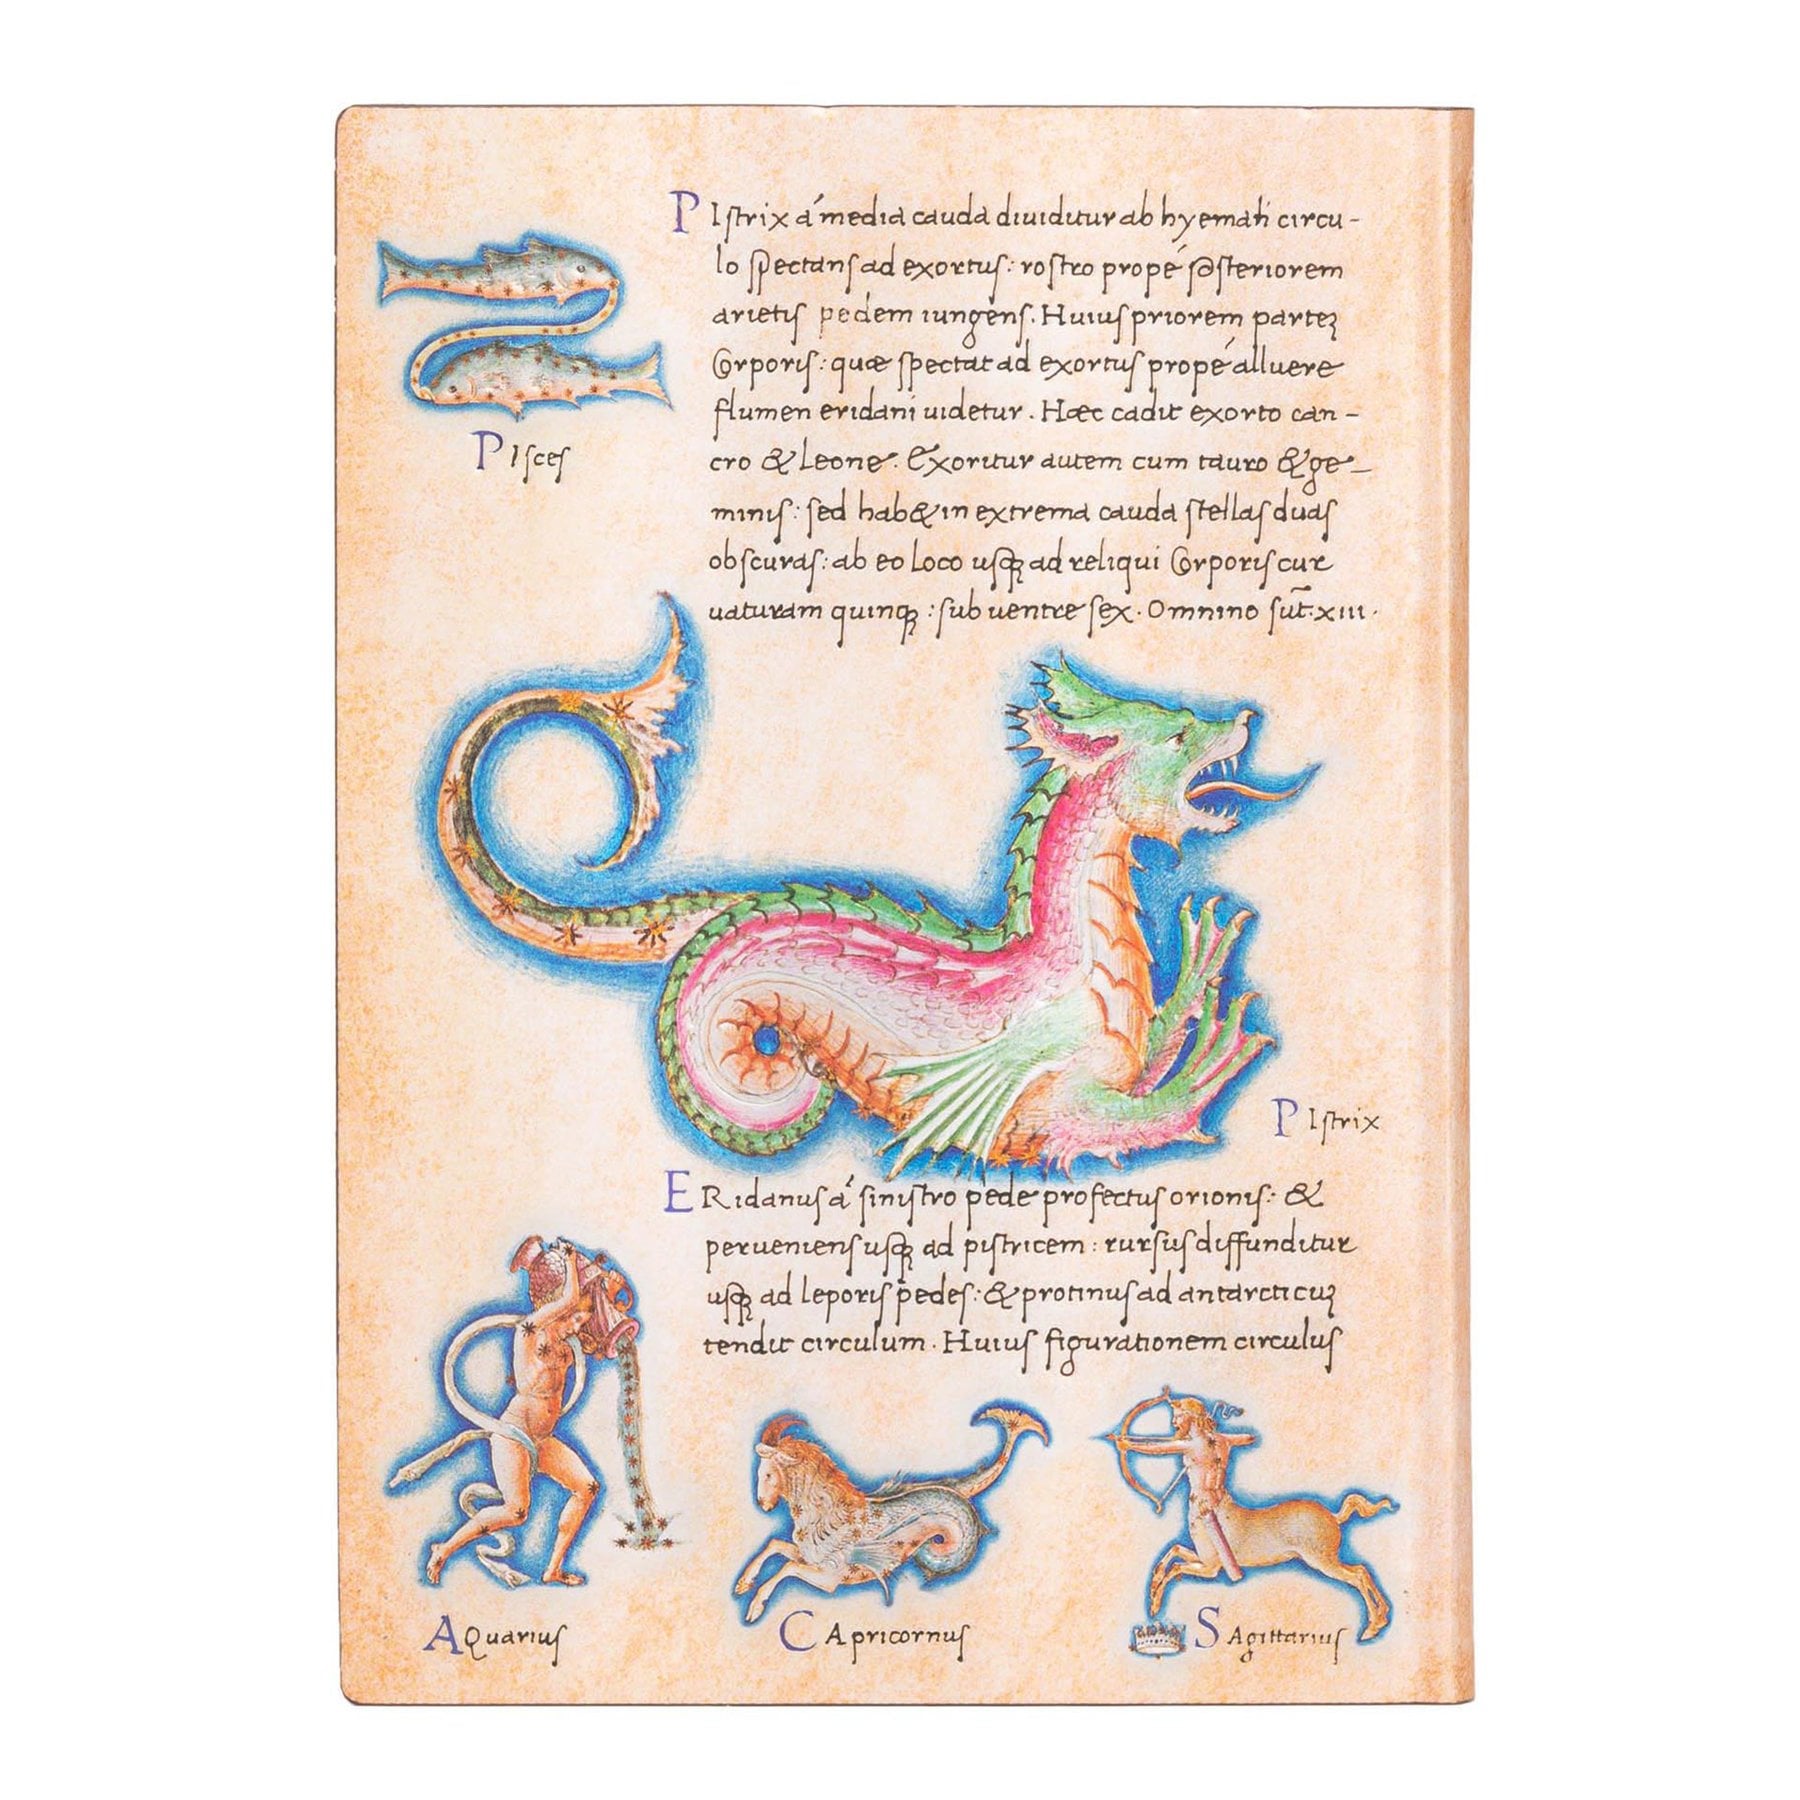 PIstrix á media cauda diuiditur ab hyemali circu-
lo spectans ad exortus: rostro propé posteriorem
arietis pedem iungens. Huius priorem parteꝫ
Corporis: quæ spectat ad exortus propé alluere
flumen eridani uidetur. Hæc cadit exorto can-
cro & Leone. Exoritur autem cum tauro & ge-
minis: sed hab& in extrema cauda stellas duas
obscuras: ab eo loco usqꝫ ad reliqui Corporis cur
uaturam quinqꝫ: sub uentre sex. Omnino sūt. xiii.
PIsces
PIstrix
ERidanus á sinistro pede profectus orionis: &
perueniens usqꝫ ad pistricem: rursus diffunditur
usqꝫ ad leporis pedes: & protinus ad antarcticuꝫ
tendit circulum. Huius figurationem circulus
AQuarius
CApricornus
SAgittarius